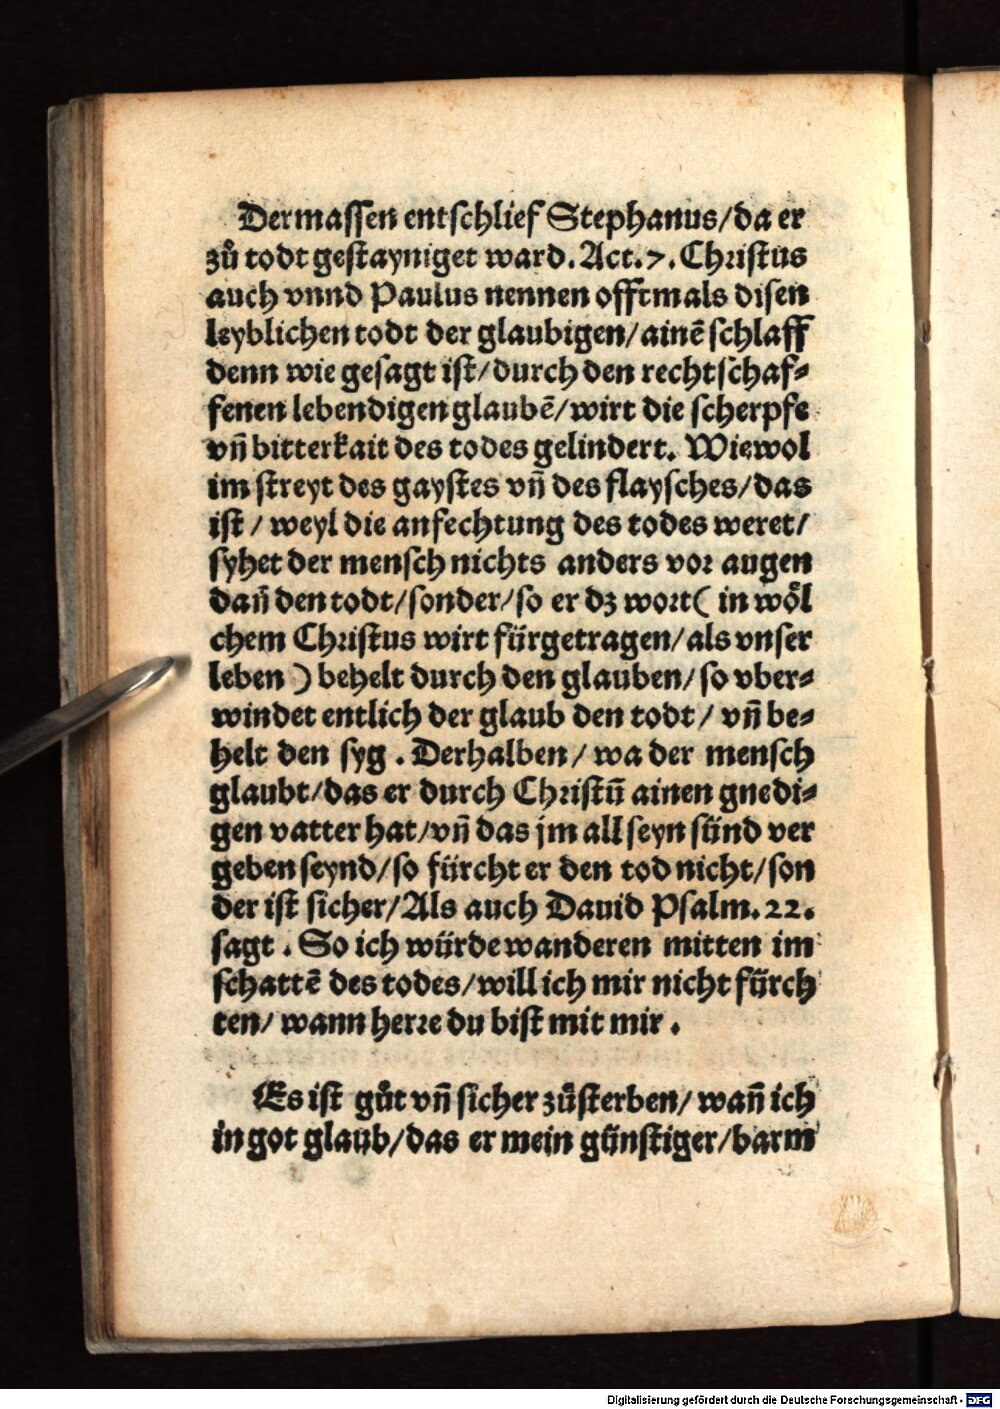 Dermassen entschlief Stephanus/da er
zů todt gestayniget ward. Act. 7. Christus
auch vnnd Paulus nennen offtmals disen
leyblichen todt der glaubigen/ainẽ schlaff
denn wie gesagt ist/durch den rechtschaf⸗
fenen lebendigen glaubẽ/wirt die scherpfe
vñ bitterkait des todes gelindert. Wiewol
im streyt des gaystes vñ des flaysches/das
ist/weyl die anfechtung des todes weret/
syhet der mensch nichts anders vor augen
dañ den todt/sonder/so er dz wort( in wöl
chem Christus wirt fürgetragen/als vnser
leben ) behelt durch den glauben/so vber⸗
windet entlich der glaub den todt/vñ be⸗
helt den syg. Derhalben/wa der mensch
glaubt/das er durch Christũ ainen gnedi⸗
gen vatter hat/vñ das jm all seyn sünd ver
geben seynd/so fürcht er den tod nicht/son
der ist sicher/Als auch Dauid Psalm. 22.
sagt. So ich würde wanderen mitten im
schattẽ des todes/will ich mir nicht fürch
ten/wann herre du bist mit mir.
Es ist gůt vñ sicher zůsterben/wañ ich
in got glaub/das er mein günstiger/barm
Digitalisierung gefördert durch die Deutsche Forschungsgemeinschaft - DFG